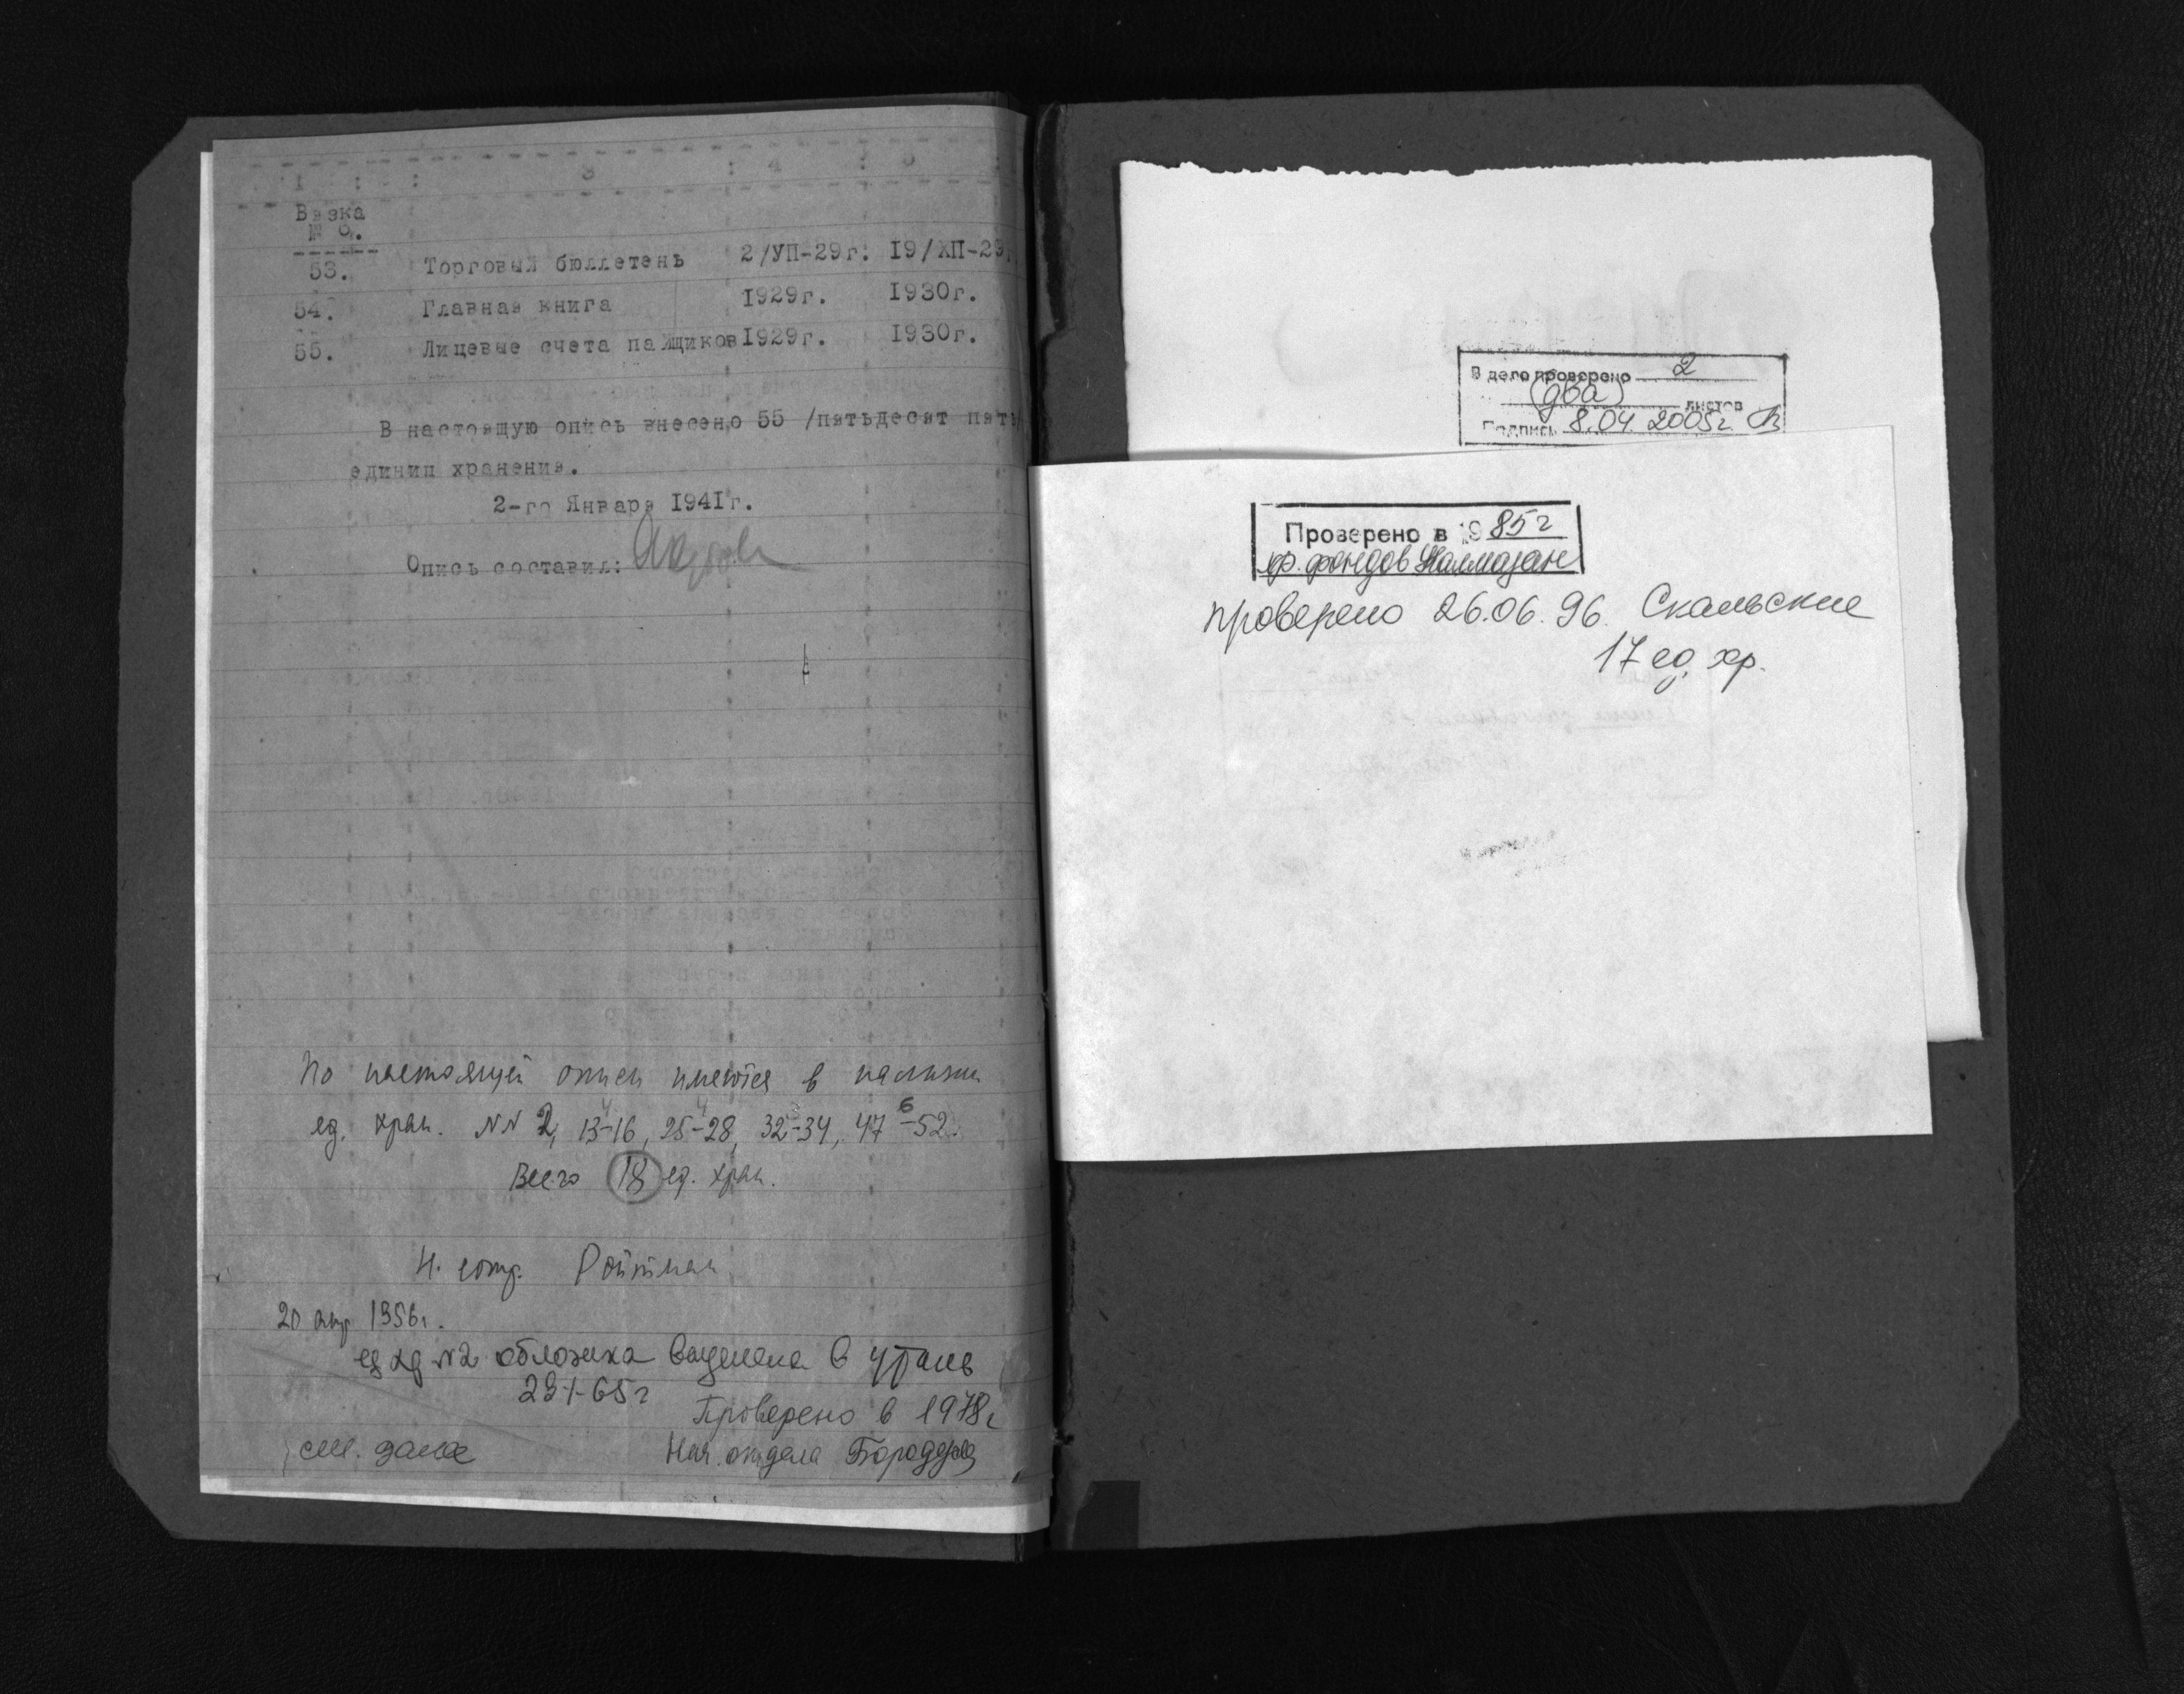 1 : : 3 : 4 : 5 :
Вязка
№ 8.
53. Торговый бюллетень 2/УП-29г: 19/ХП-29г.
54. Главная книга 1929г. 1930г.
55. Лицевые счета пайщиков 1929г. 1930г.
В настоящую опись внесено 55 /пятьдесят пять/
единиц хранения.
2-го Января 1941г.
Опись составил:
По настоящей описи имеются в наличии
ед. хран. NN 2, 13-16, 25-28, 32-34, 47-52.
4 4 3 6
Всего 18 ед. хран.
Н. сотр. Ройтман
20 апр 1956г.
ед хр №2 обложка выделена в утиль
23-I-65г
Проверено в 1978г
Нач. отдела
В деле проверено 2
(два) листов
Подпись 8.04. 2005г.
Проверено в 1985г
хр. фондов
проверено 26.06.96. Скальские
17 ед. хр.